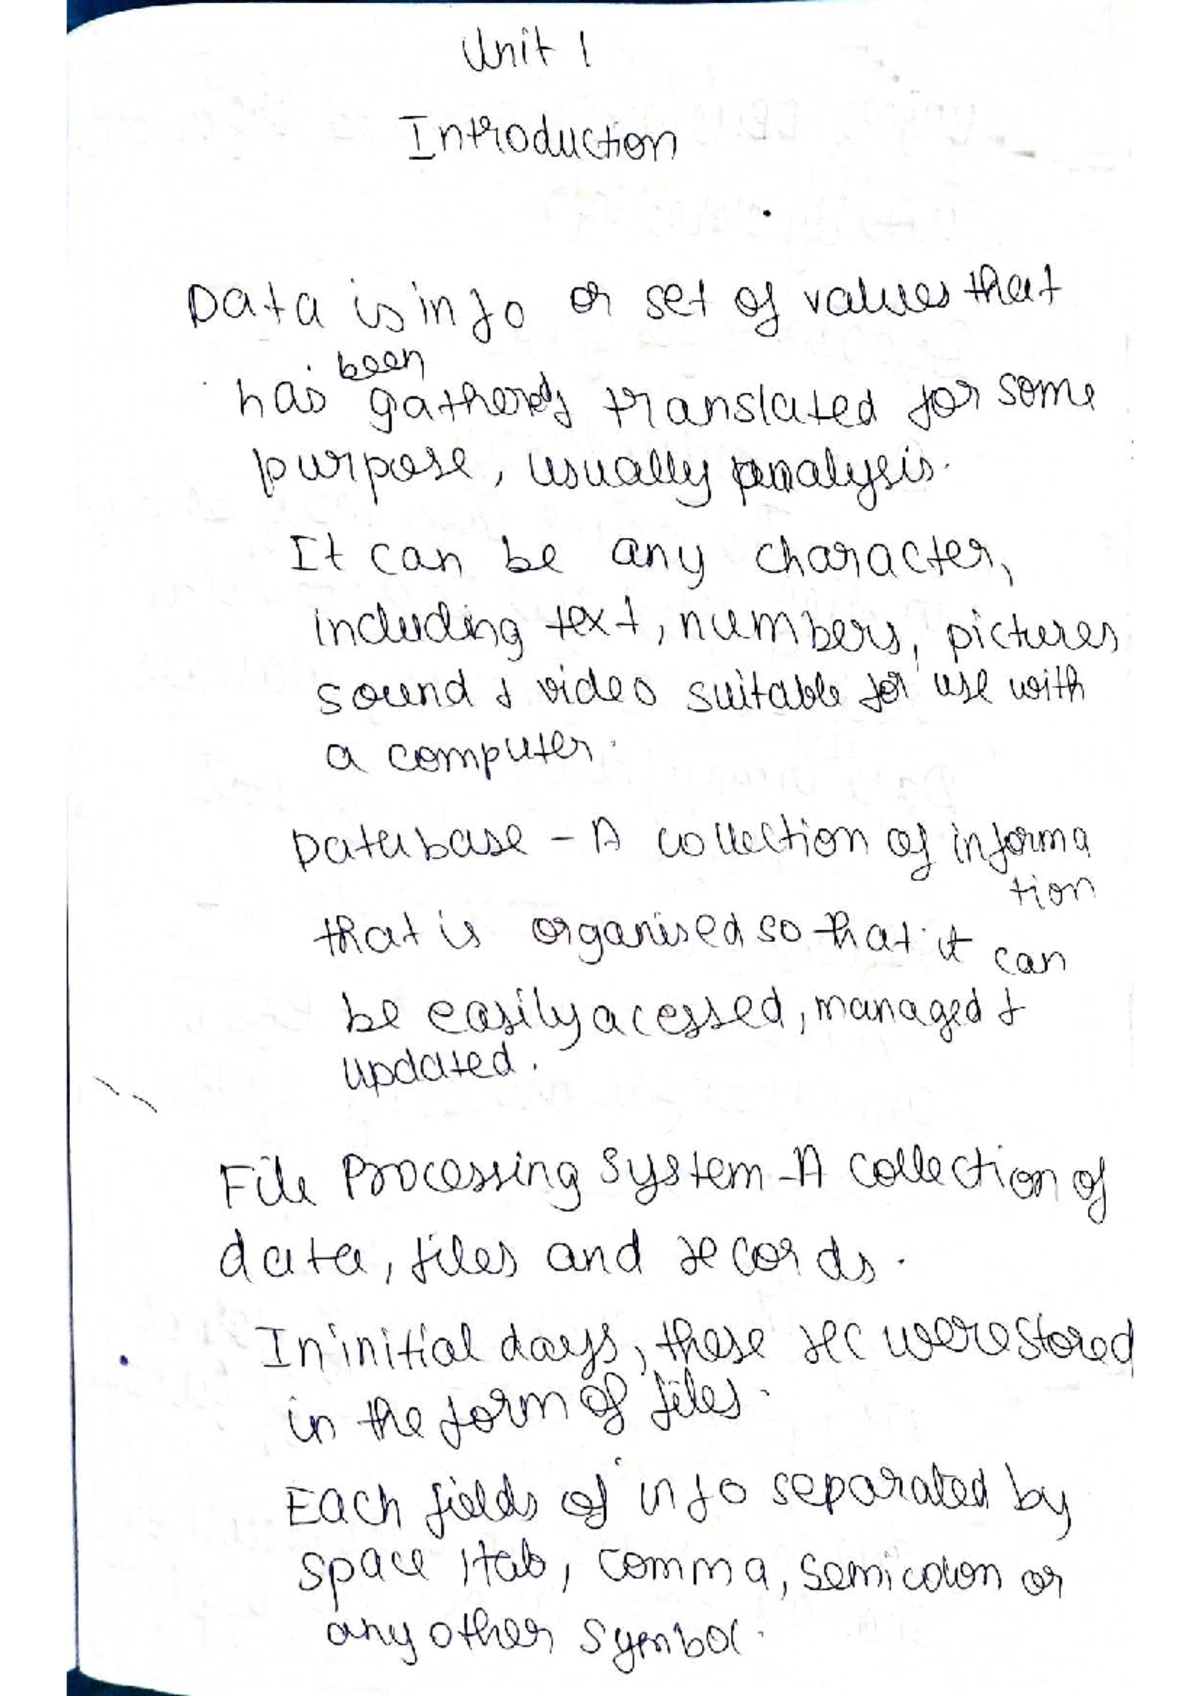 Unit 1
Introduction
Data is info or set of values that
has been gathered & translated for some
purpose, usually analysis.
It can be any character,
including text, numbers, pictures
sound & video suitable for use with
a computer.
Database - A collection of informa
tion
that is organised so that it can
be easily acessed, managed &
updated.
File Processing System - A collection of
data, files and records.
In initial days, these rec were stored
in the form of files.
Each fields of info separated by
space / tab, comma, semicolon or
any other symbol.